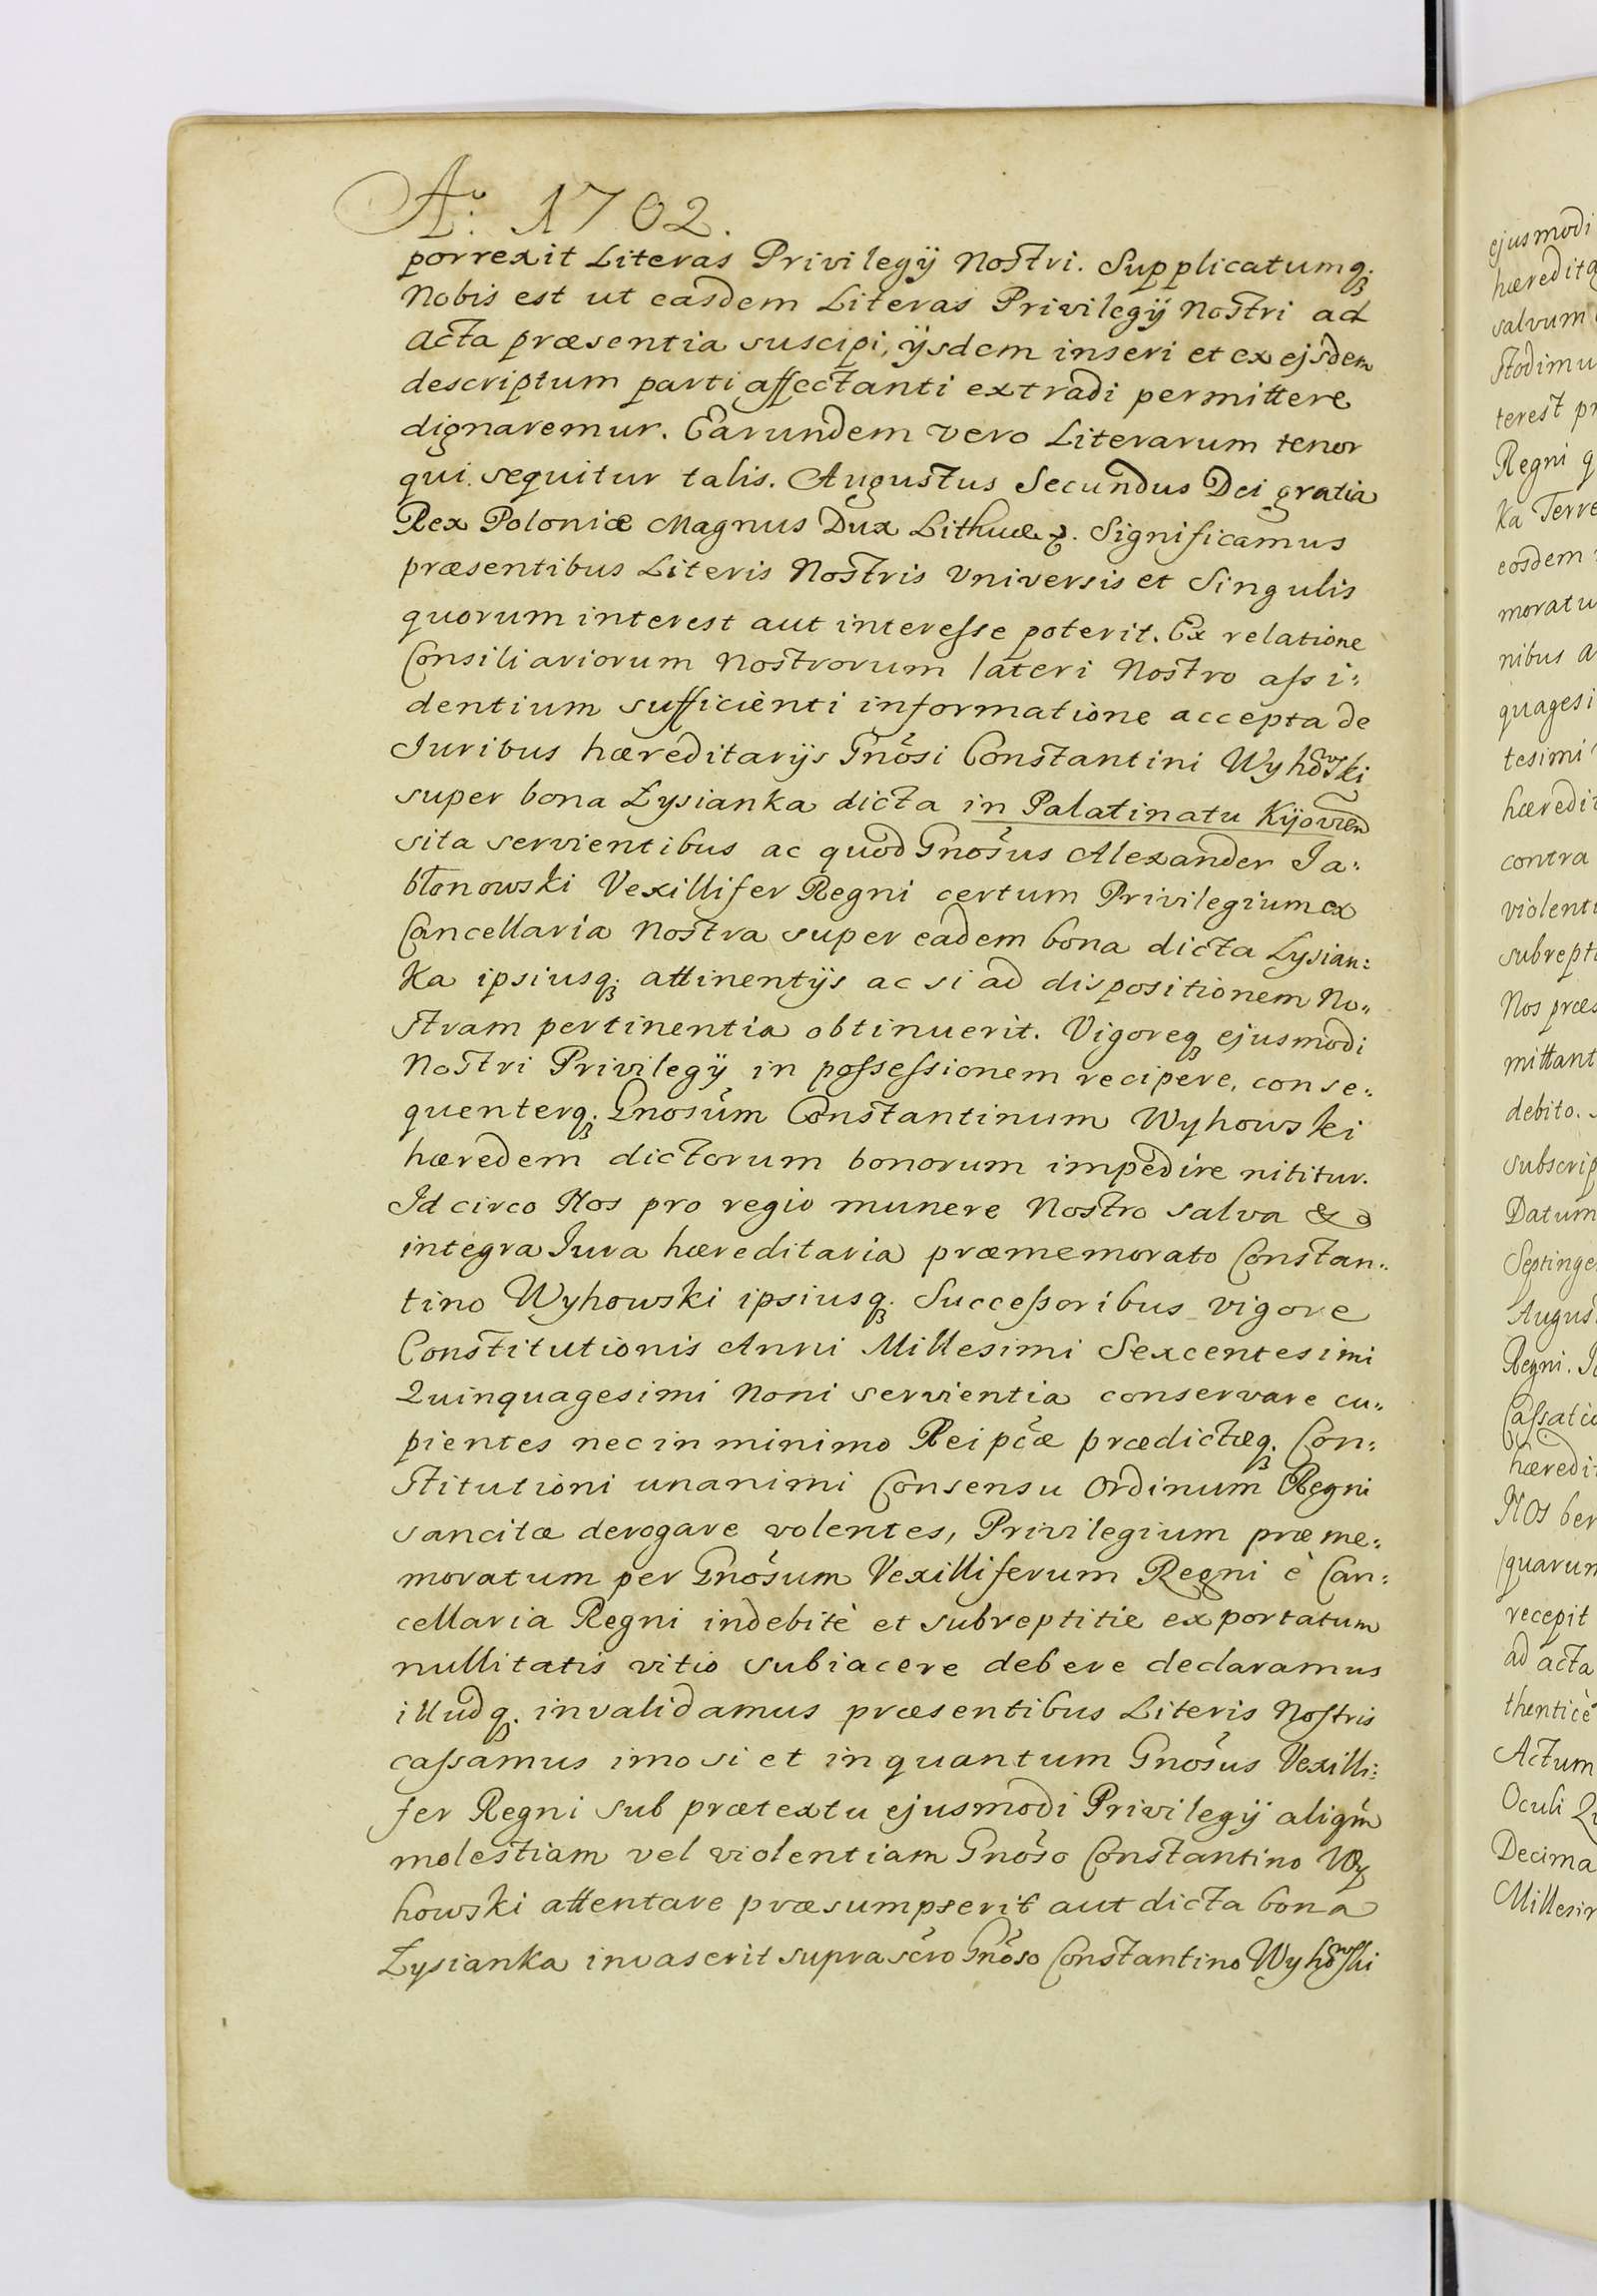 Aº: 1702.
porrexit Literas Privilegÿ Nostri. Supplicatumq3
Nobis est ut easdem Literas Privilegÿ Nostri ad
Acta præsentia suscipi, ÿsdem inseri et ex ejsdem
descriptum parti affectanti extradi permittere
dignaremur. Earundem vero Literarum tenor
qui sequitur talis. Augustus Secundus Dei gratia
Rex Poloniæ Magnus Dux Lithuæ &. Significamus
præsentibus Literis Nostris Universis et Singulis
quorum interest aut interesse poterit. Ex relatione
Consiliariorum Nostrorum lateri Nostro assi:
dentium sufficienti informatione accepta de
Iuribus hæreditarÿs Gnosi Constantini Wyhowski
super bona Łysianka dicta in Palatinatu Kijovien
sita servientibus ac quod Gnosus Alexander Ja:
błonowski Vexillifer Regni certum Privilegium ex
Cancellaria Nostra super eadem bona dicta Lysian:
ka ipsiusq3 attinentÿs ac si ad dispositionem No:
stram pertinentia obtinuerit. Vigoreq3 ejusmodi
Nostri Privilegÿ in possessionem recipere, conse:
quenterq3 Gnosum Constantinum Wyhowski
hæredem dictorum bonorum impedire nititur.
Id circo Nos pro regio munere Nostro salva &
integra Iura hæreditaria præmemorato Constan:
tino Wyhowski ipsiusq3 Successoribus vigore
Constitutionis Anni Millesimi Sexcentesimi
Quinquagesimi Noni servientia conservare cu:
pientes nec in minimo Reipcæ prædictæq3 Con:
stitutioni unanimi Consensu Ordinum Regni
sancitæ derogare volentes, Privilegium præme:
moratum per Gnosum Vexilliferum Regni è Can:
cellaria Regni indebitè et subreptitie exportatum
nullitatis vitio subiacere debere declaramus
illudq3 invalidamus præsentibus Literis Nostris
cassamus imo si et inquantum Gnosus Vexilli:
fer Regni sub prætextu ejusmodi Privilegÿ aliqm
molestiam vel violentiam Gnoso Constantino Wy
howski attentare præsumpserit aut dicta bona
Łysianka invaserit suprascro Gnoso Constantino Wyhowski
ejusmodi
salvum
terest
Regni
eosdem
nibus
quagesi
tesimi
contra
debito.
Datum
Regni.
recepit
ad acta
thenticè
Actum
Oculi
Decima